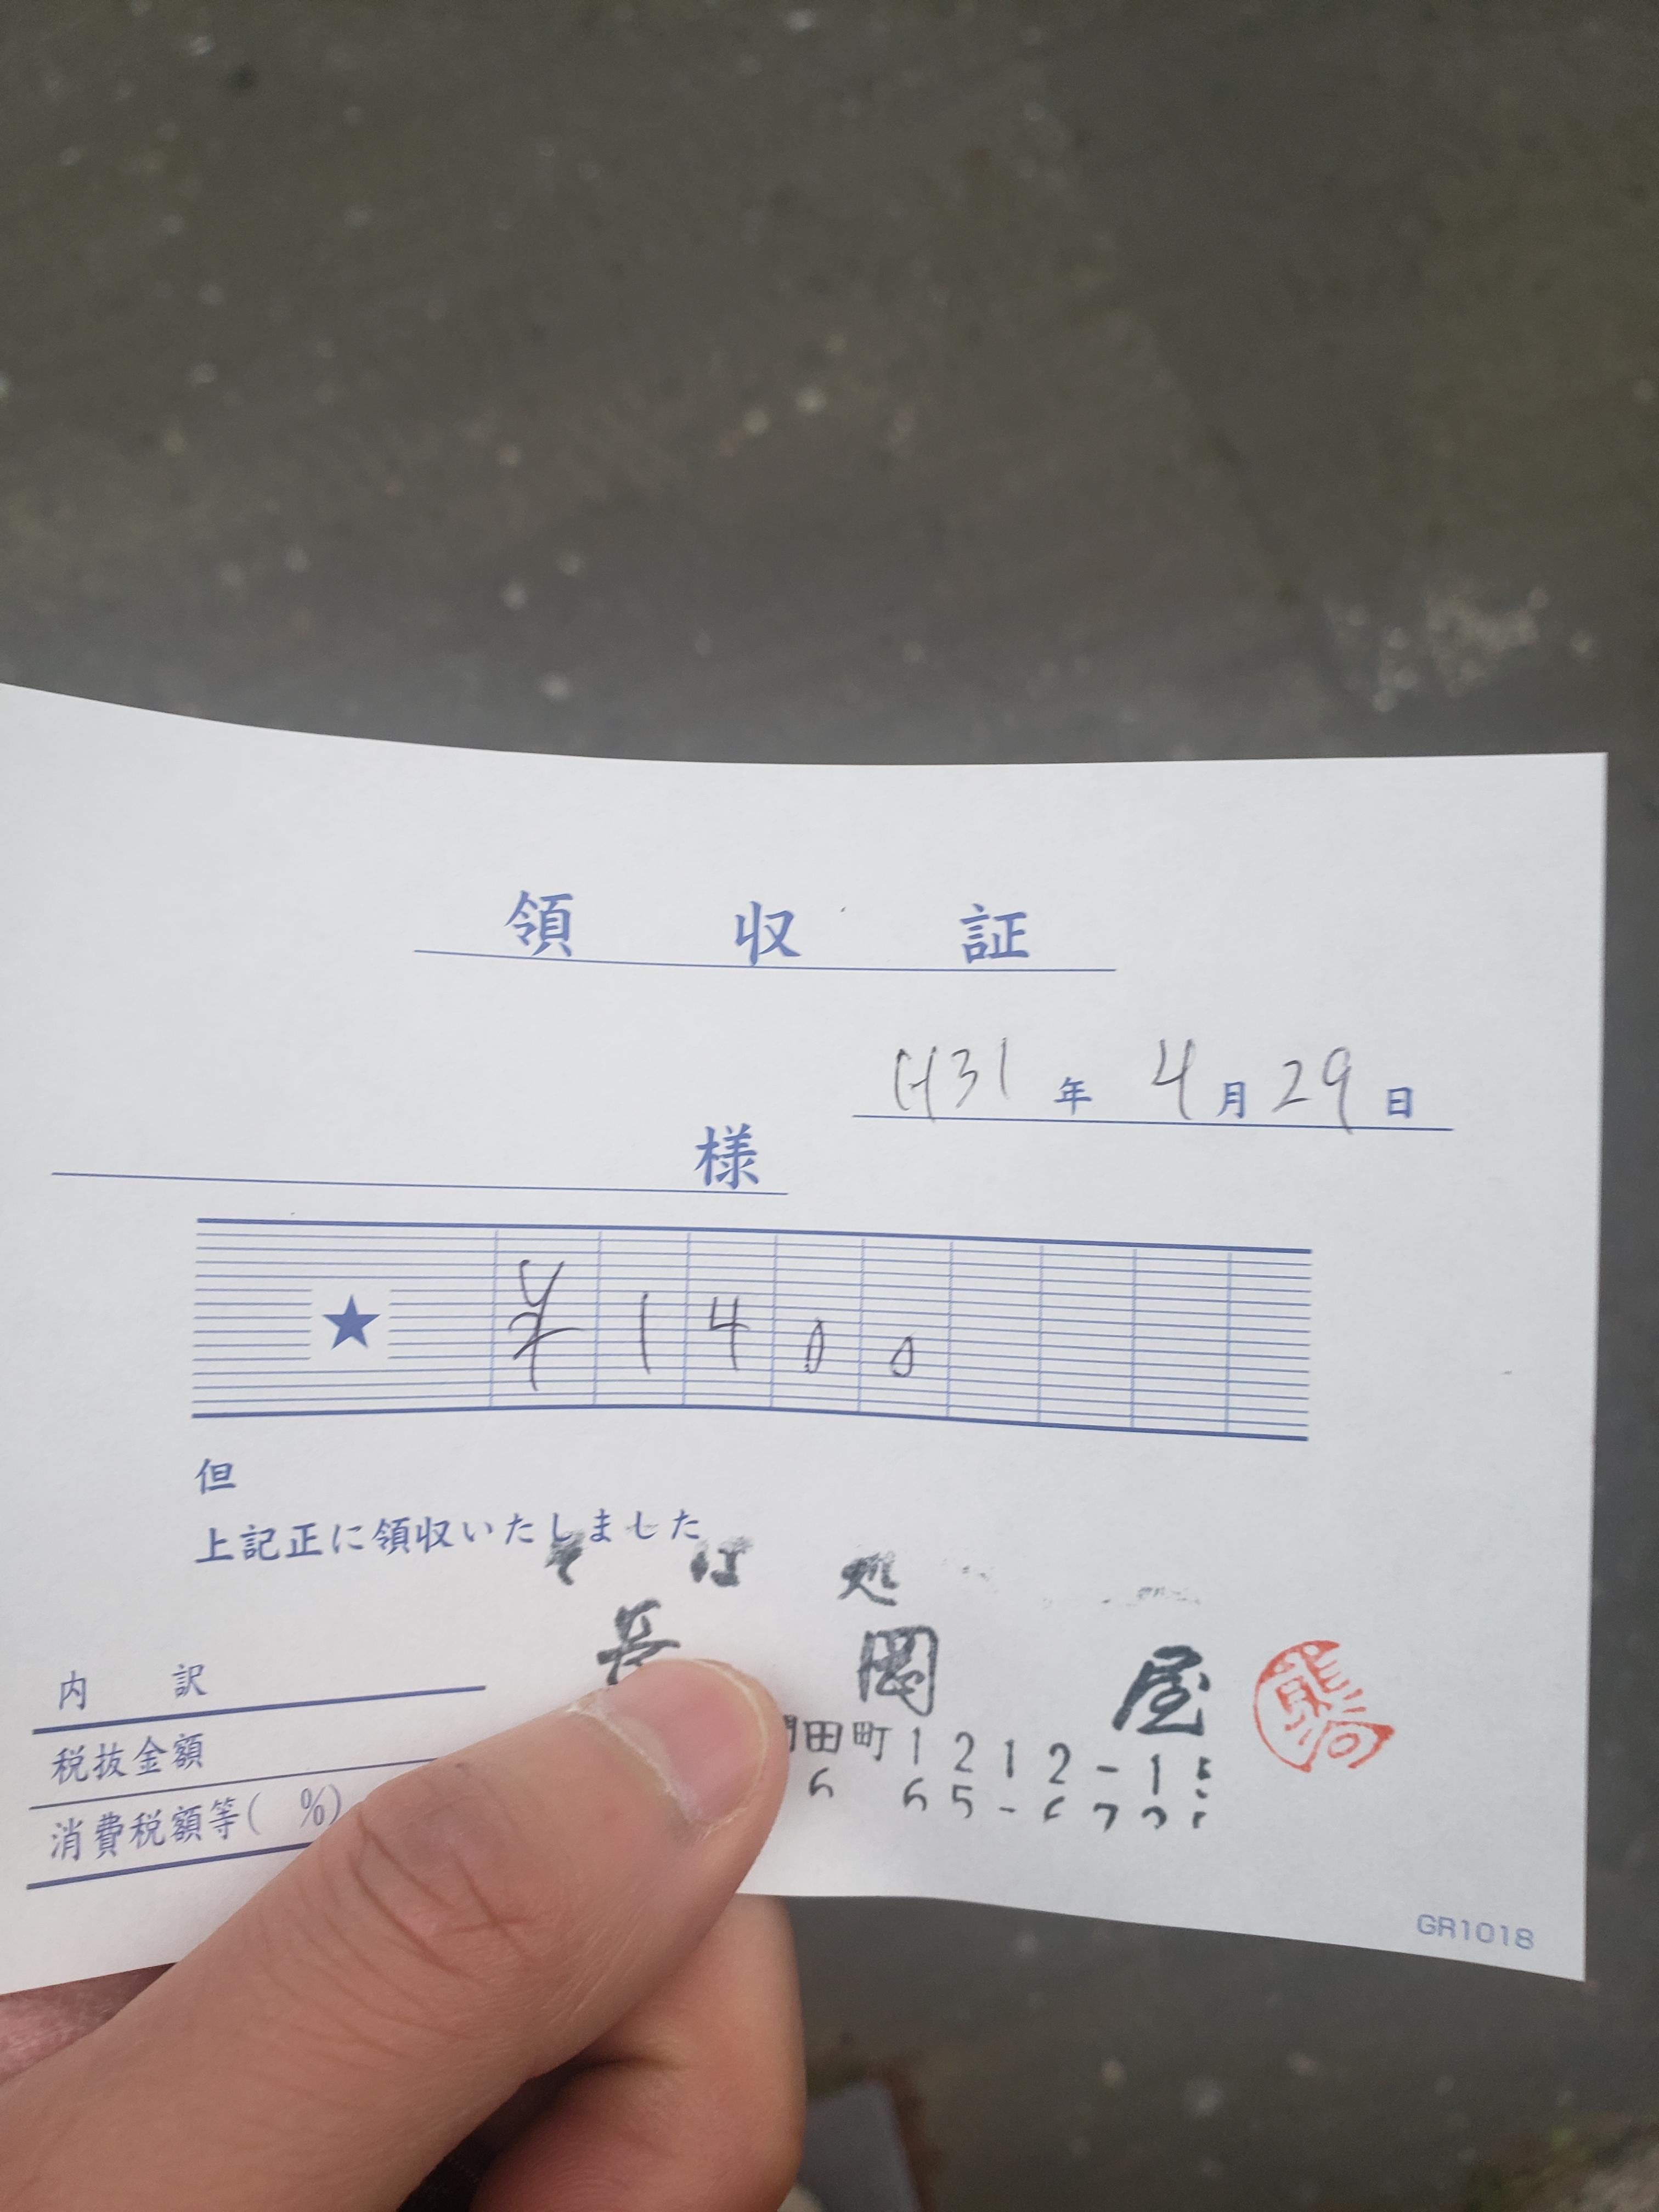 領収証
H31年 4月29日
様
★ ¥1400
但
上記正に領収いたしました
そば処
長岡屋
熊沢
内訳
田町1212-1
税抜金額
消費税額等( %)
GR1018